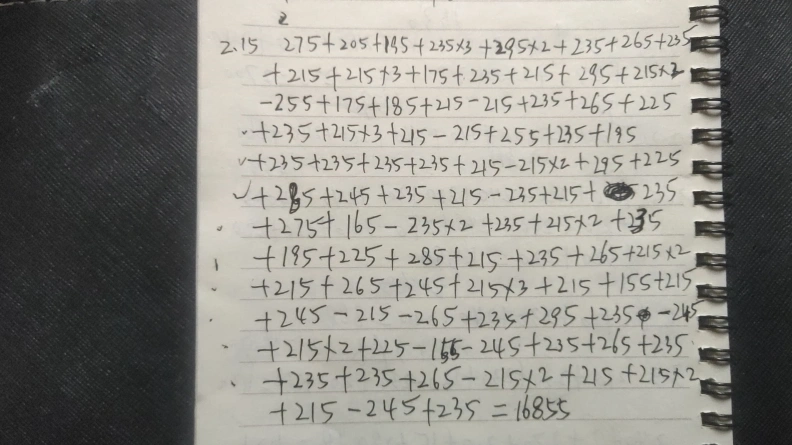 2.15 275+205+195+235×3+295×2+235+265+235
+215+215×3+175+235+215+295+215×2
-255+175+185+215-215+235+265+225
+235+215×3+215-215+255+235+195
+235+235+235+235+215-215×2+295+225
+285+245+235+215-235+215+235
+275+165-235×2+235+215×2+235
+195+225+285+215+235+265+215×2
+215+265+245+215×3+215+155+215
+245-215-265+235+295+235-245
+215×2+225-155-245+235+265+235
+235+235+265-215×2+215+215×2
+215-245+235=16855